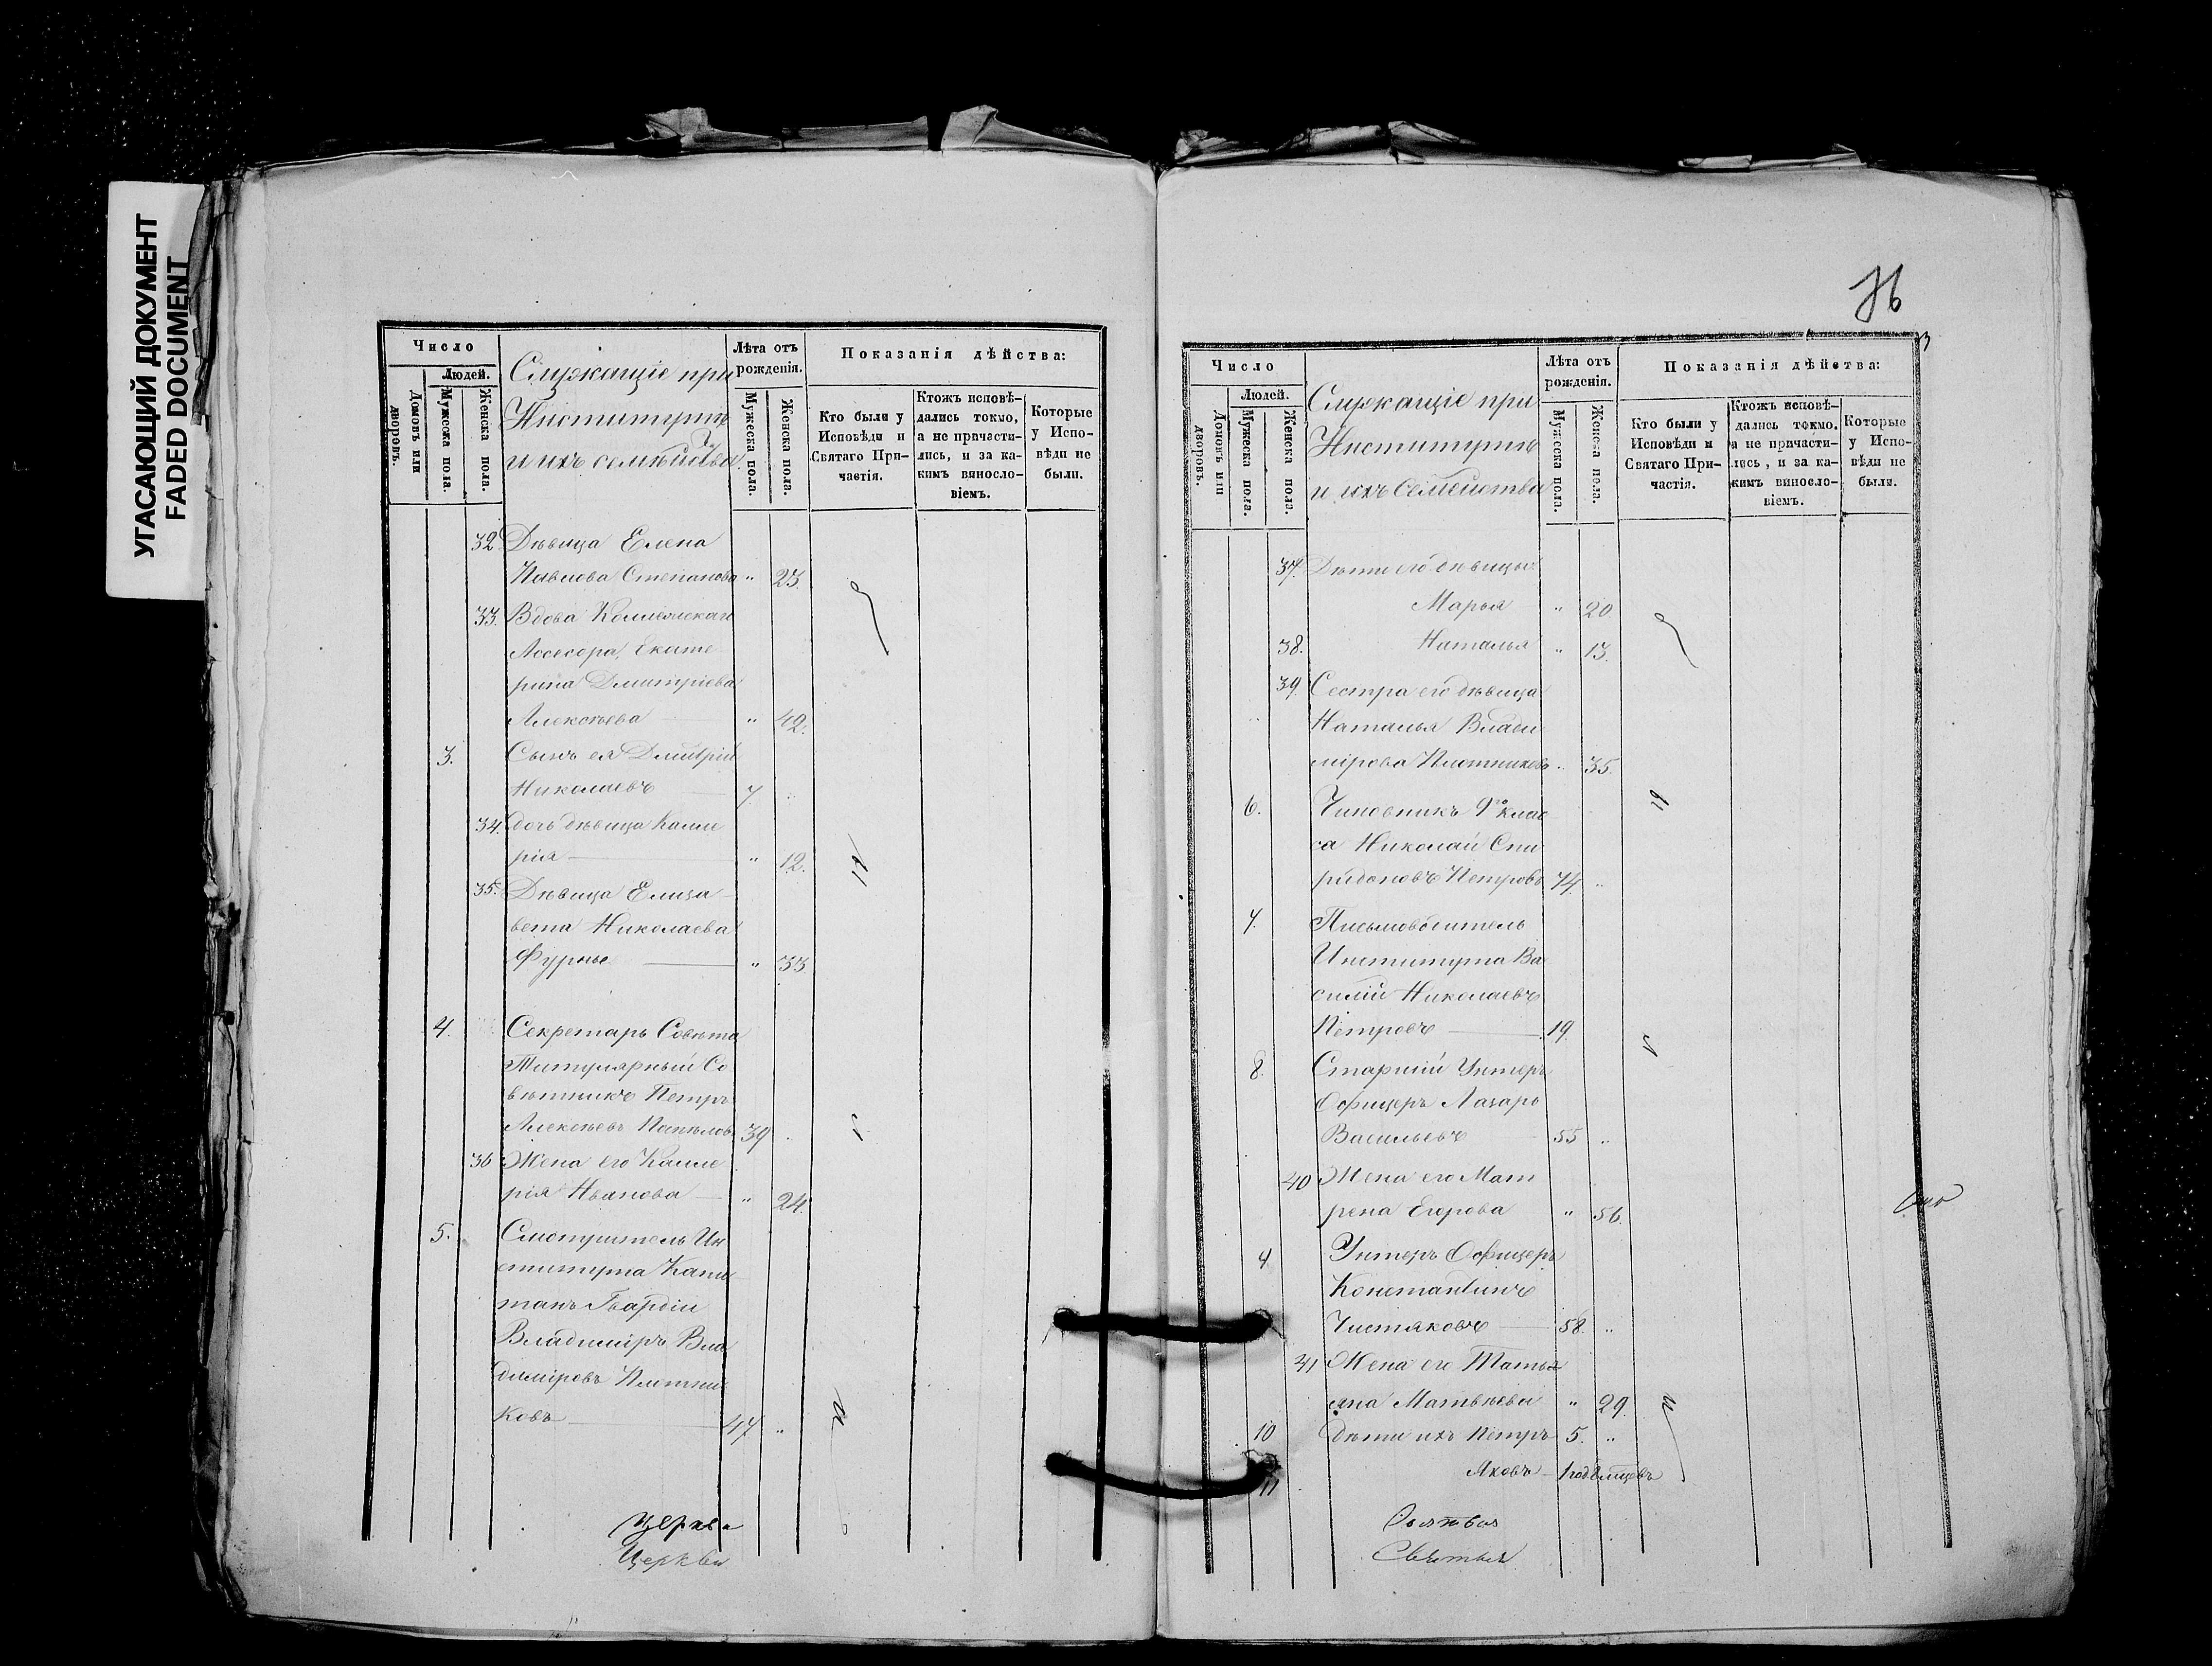 УГАСАЮЩИЙ ДОКУМЕНТ
FADED DOCUMENT
Число
Людей.
Домовъ или дворовъ.
Мужеска пола.
Женска пола.
Служащіе при
Институтѣ
и ихъ семейства
Лѣта отъ рожденія.
Мужеска пола.
Женска пола.
Показанія дѣйства:
Кто были у Исповѣди и Святаго Причастія.
Ктожъ исповѣдались токмо, а не причастились, и за какимъ винословіемъ.
Которые у Исповѣди не были.
32 Дѣвица Елена
Павлова Степанова " 23
33. Вдова Коллежскаго
Ассесора, Екате
рина Дмитріева
Алексѣева " 42.
3. Сынъ ея Дмитрій
Николаевъ 7 "
34. дочь дѣвица Калле
рія " 12.
35. Дѣвица Елиза
вета Николаева
Фурнье " 33
4. Секретарь Совѣта
Титулярный Со
вѣтникъ Петръ
Алексѣевъ 39 "
36 Жена его Калле
рія Иванова " 24.
5. Смотритель Ин
ститута Капи
танъ Гвардіи
Владиміръ Вла
диміровъ Плотни
ковъ 47 "
Церкви
Церкви
76
Число
Людей.
Домовъ или дворовъ.
Мужеска пола.
Женска пола.
Служащіе при
Институтѣ
и ихъ Семейства
Лѣта отъ рожденія.
Мужеска пола.
Женска пола.
Показанія дѣйства:
Кто были у Исповѣди и Святаго Причастія.
Ктожъ исповѣдались токмо, а не причастились, и за какимъ винословіемъ.
Которые у Исповѣди не были.
37. Дѣти его дѣвицы
Марья " 20
38. Наталья " 13.
39. Сестра его дѣвица
Наталья Влади
мірова Плотникова " 35.
6. Чиновникъ 9го клас
са Николай Спи
ридоновъ Петровъ 74. "
7. Письмоводитель
Института Ва
силій Николаевъ
Петровъ 19.
8. Старшій Унтеръ
Офицеръ Лазарь
Васильевъ 55 "
40 Жена его Мат
рена Егорова " 56.
9 Унтеръ Офицеръ
Константинъ
Чистяковъ 58. "
41 Жена его Татья
яна Матвѣева " 29.
10 Дѣти ихъ Петръ 5. "
11 Яковъ